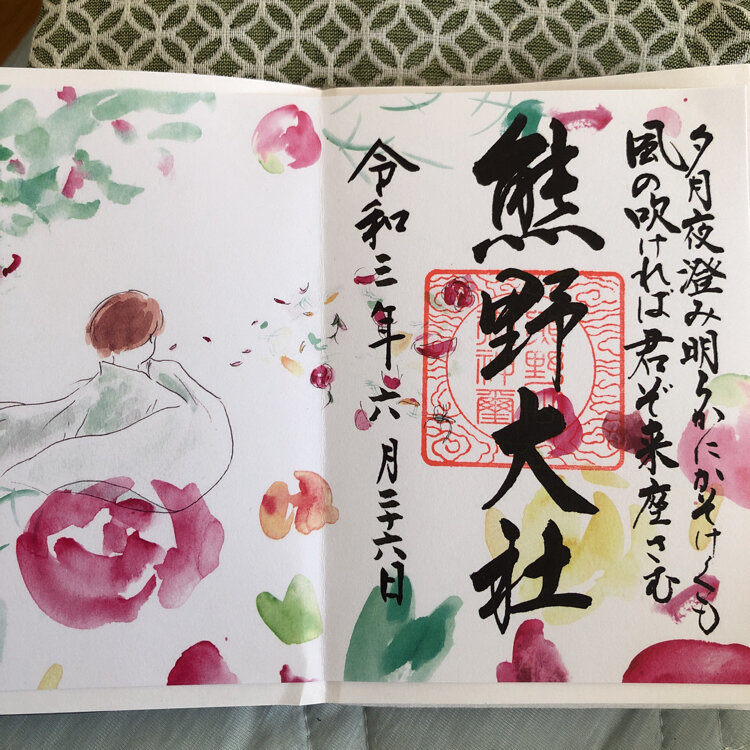 夕月夜澄み明らかにかそけくも
風の吹ければ君ぞ来座さむ
熊野大社
令和三年六月二十六日